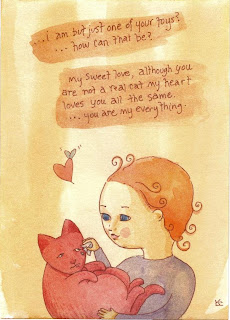 ...i am but just one of your toys?
... how can that be?
my sweet love, although you
are not a real cat my heart
loves you all the same.
... you are my everything.